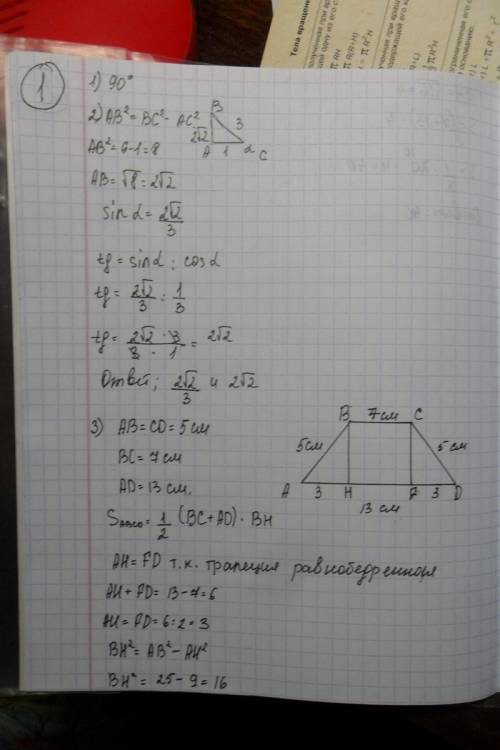 Тела вращения
πR²H
1
1) 90°
2) AB² = BC² - AC²
B
2√2
3
A 1 α C
AB² = 9-1=8
AB = √8 = 2√2
sin α = 2√2/3
tg = sin α : cos α
tg = 2√2/3 : 1/3
tg = 2√2 · 3 / 3 · 1 = 2√2
Ответ; 2√2/3 и 2√2
3) AB = CD = 5 см
BC = 7 см
AD = 13 см.
B 7см C
5см
5 см
A 3 H F 3 D
13 см
= 1/2 (BC + AD) · BH
AH = FD т.к. трапеция равнобедренная
AH + FD = 13 - 7 = 6
AH = FD = 6 : 2 = 3
BH² = AB² - AH²
BH² = 25 - 9 = 16